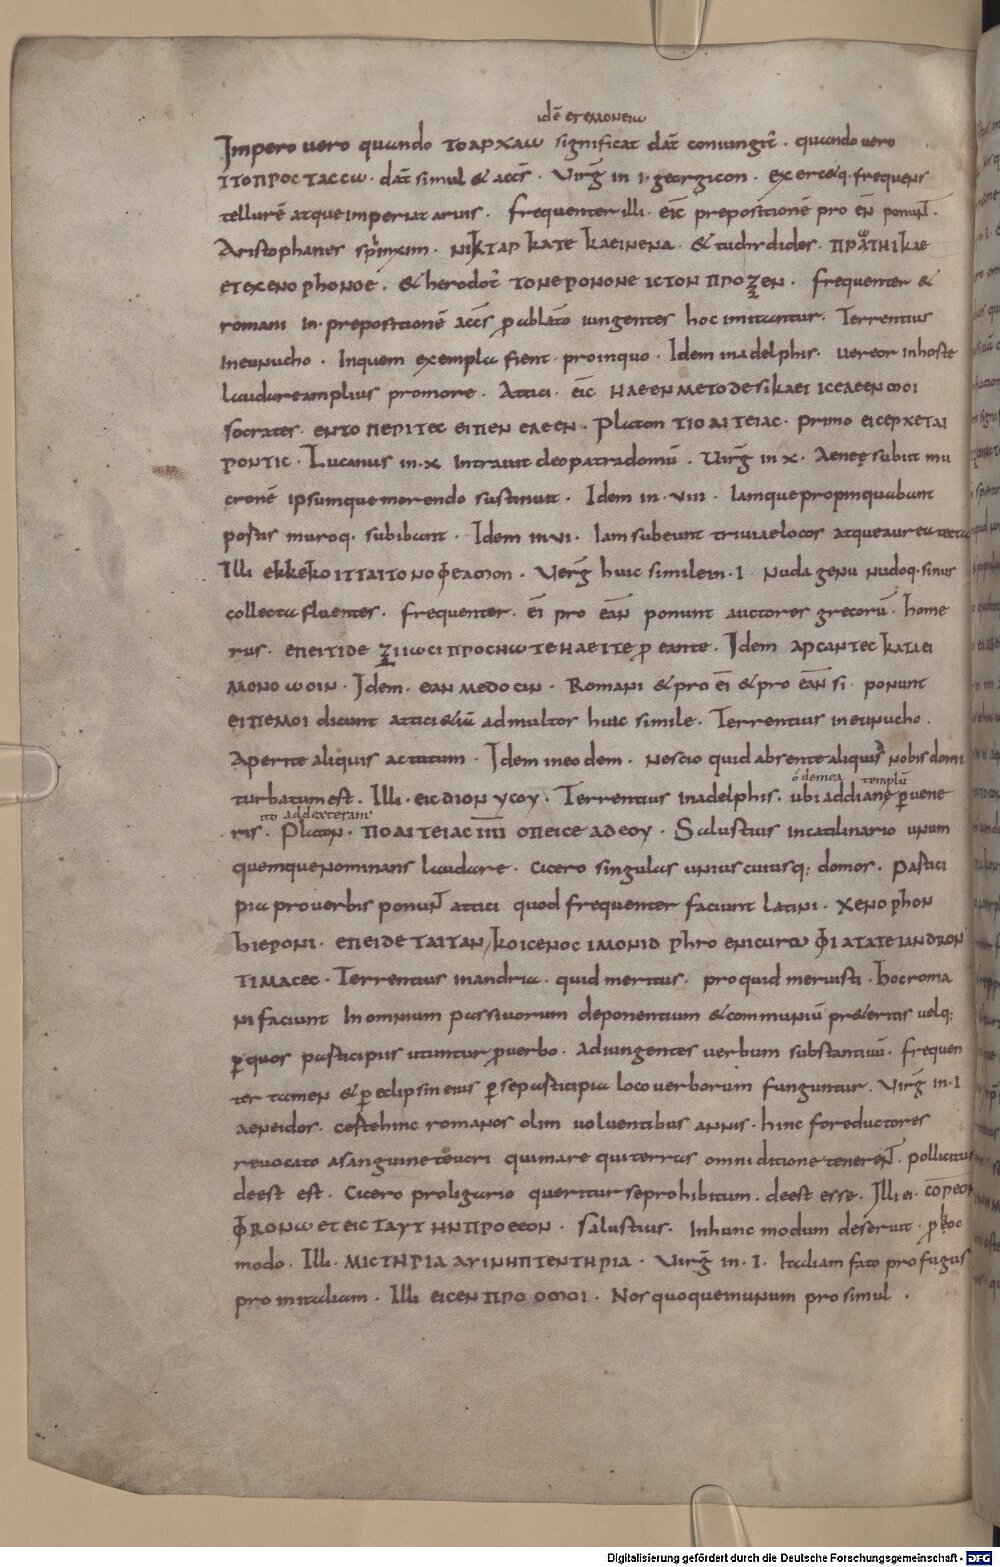 idē ΕΓΕΜΟΝΕΙω
Impero uero quando ΤΟΑΡΧΑω significat dat̄ coniungit̄ . quando uero
ΙΤΟΠΡΟCΤΑCCω . dat̄ simul & accs̄ . Virḡ in ·I· georgicon . exerc&q· frequens
tellurē atque imperat aruis . frequenter illi . εἰc prepositionē pro ēn ponunt̄ .
Aristophanes . ΝΙΚΤΑΡ ΚΑΤΕ ΚΑΕΙΝΕΝΑ . & tuchrdides . ΠΡΑΤΗΙ ΚΑΕ
ΕΤΕΧΕΝΟΡhΟΝΟΕ . & herodot̄ ΤΟΝΕΡΟΝΟΝΕ ΙCΤΟΝ ΠΡΟΖΕΝ . frequenter &
romani in· prepositionē accs̄ p ablatō iungentes hoc imitantur . Terrentius
In eunucho . Inquem exempla fient . pro in quo . Idem in adelphis . uereor in hoste
laudare amplius pro in ore . Attici . εἰc ΗΛΕΕΝ ΜΕΤΟΔΕ SΙΚΑΕΙ ΙCCΛΕΕΝ ΟΟΙ
socrates . ΕΝΤΟ ΠΕΡΙΤΕC ΕΙΠΕΝ ΕΛΕΕΝ . Platon ΤΙΟΑΙΤΕΙΑC . primo ΕΙCΕΡΧΕΤΑΙ
ΡΟΝΤΙC . Lucanus in ·x· Intrauit cleopatra domū . Virḡ in x . Aeneę subiit mu
cronē ipsumque morendo sustinuit . Idem in ·viii· Iamque propinquabant
postis muroq· subibant . Idem in vi . Iam subeunt triuiae locos atque aurea tecta
Illi ΕΚΚΕΚΟΙΤΤΑΙΤΟΝΟΦΕΑΟΟΝ . Verg̅ huic simile in ·I· Nuda genu nudoq· sinus
collecta fluentes . frequenter . εἰ pro ēan ponunt auctores grecorū . home
rus . ΕΠΕΙΤΙΔΕ ΖΙΙωCΙ ΠΡΟCΗωΤΕ ΗΛΕΙΤΕ p eante . Idem ΑΡCΑΝΤΕC ΚΑΤΑΕΙ
ΜΟΝΟωΟΙΝ . Idem . ΕΑΝ ΜΕΔΟCΙΝ . Romani & pro ēi & pro ēan si . ponunt
ΕΙΠΕΜΟΙ dicunt attici &iā ad multos huic simile . Terrentius in eunucho .
Aperite aliquis actutum . Idem in eodem . nescio quid absente aliquis nobis domi
ó demea templū
turbatum est . Illi . ΕΙC ΔΙΟΝΥCΟΥ . Terrentius in adelphis . ubi ad dianę puene
ito ad dexteram
ris . Platon . ΠΟΛΙΤΕΙΑC ΙΙΙΙ ΟΠΕΙCΕ ΑΔΕΟΥ . Salustius in catilinario unum
quemque nominans laudare . cicero singulas unius cuiusq; domos . Pastici
pia pro uerbis ponunt̄ attici quod frequenter faciunt latini . Xenophon
hieroni . ΕΠΕΙΔΕ ΤΑΙΤΑΝ ΚΟΙCΕΝΟC ΙΜΟΝΙD phro ΕΝΙCΥΡω ΦΙΑΤΑΤΕ ΙΑΝDRΟΝ
ΤΙΜΑCΕC . Terrentius in andria . quid meritus . pro quid meruisti . hoc roma
ni faciunt In omnium passiuorum deponentium & communiū pr&eritis uelq;
p quos pasticipiis utuntur puerbo . adiungentes uerbum substantiuū . frequen
ter tamen & p eclipsin eius p se pasticipia loco uerborum funguntur . Virḡ in ·I
aeneidos . cestehinc romanos olim uoluentibus annis . hinc fore ductores
reuocato a sanguine teucri qui mare qui terras omni ditione tenerent̄ . pollicitus
deest est . Cicero pro ligario queritur se prohibitum . deest esse . Illi ei . cō ΡΕΟΡ
ΦRΟΝω ΕΤ ΕΙC ΤΑΥΤΗΝ ΠΡΟΕΕΟΝ . Salustius . In hunc modum deseruit . p hoc
modo . Illi . ΜΙCΤΗΡΙΑ ΑΥΙΝΗΠΤΕΝΤΗΡΙΑ . Virḡ in ·I· Italiam fato profugus
pro in italiam . Illi ΕΙCΕΝ ΠΡΟ ΟΟΟΙ . Nos quoque munum pro simul .
Digitalisierung gefördert durch die Deutsche Forschungsgemeinschaft - DFG